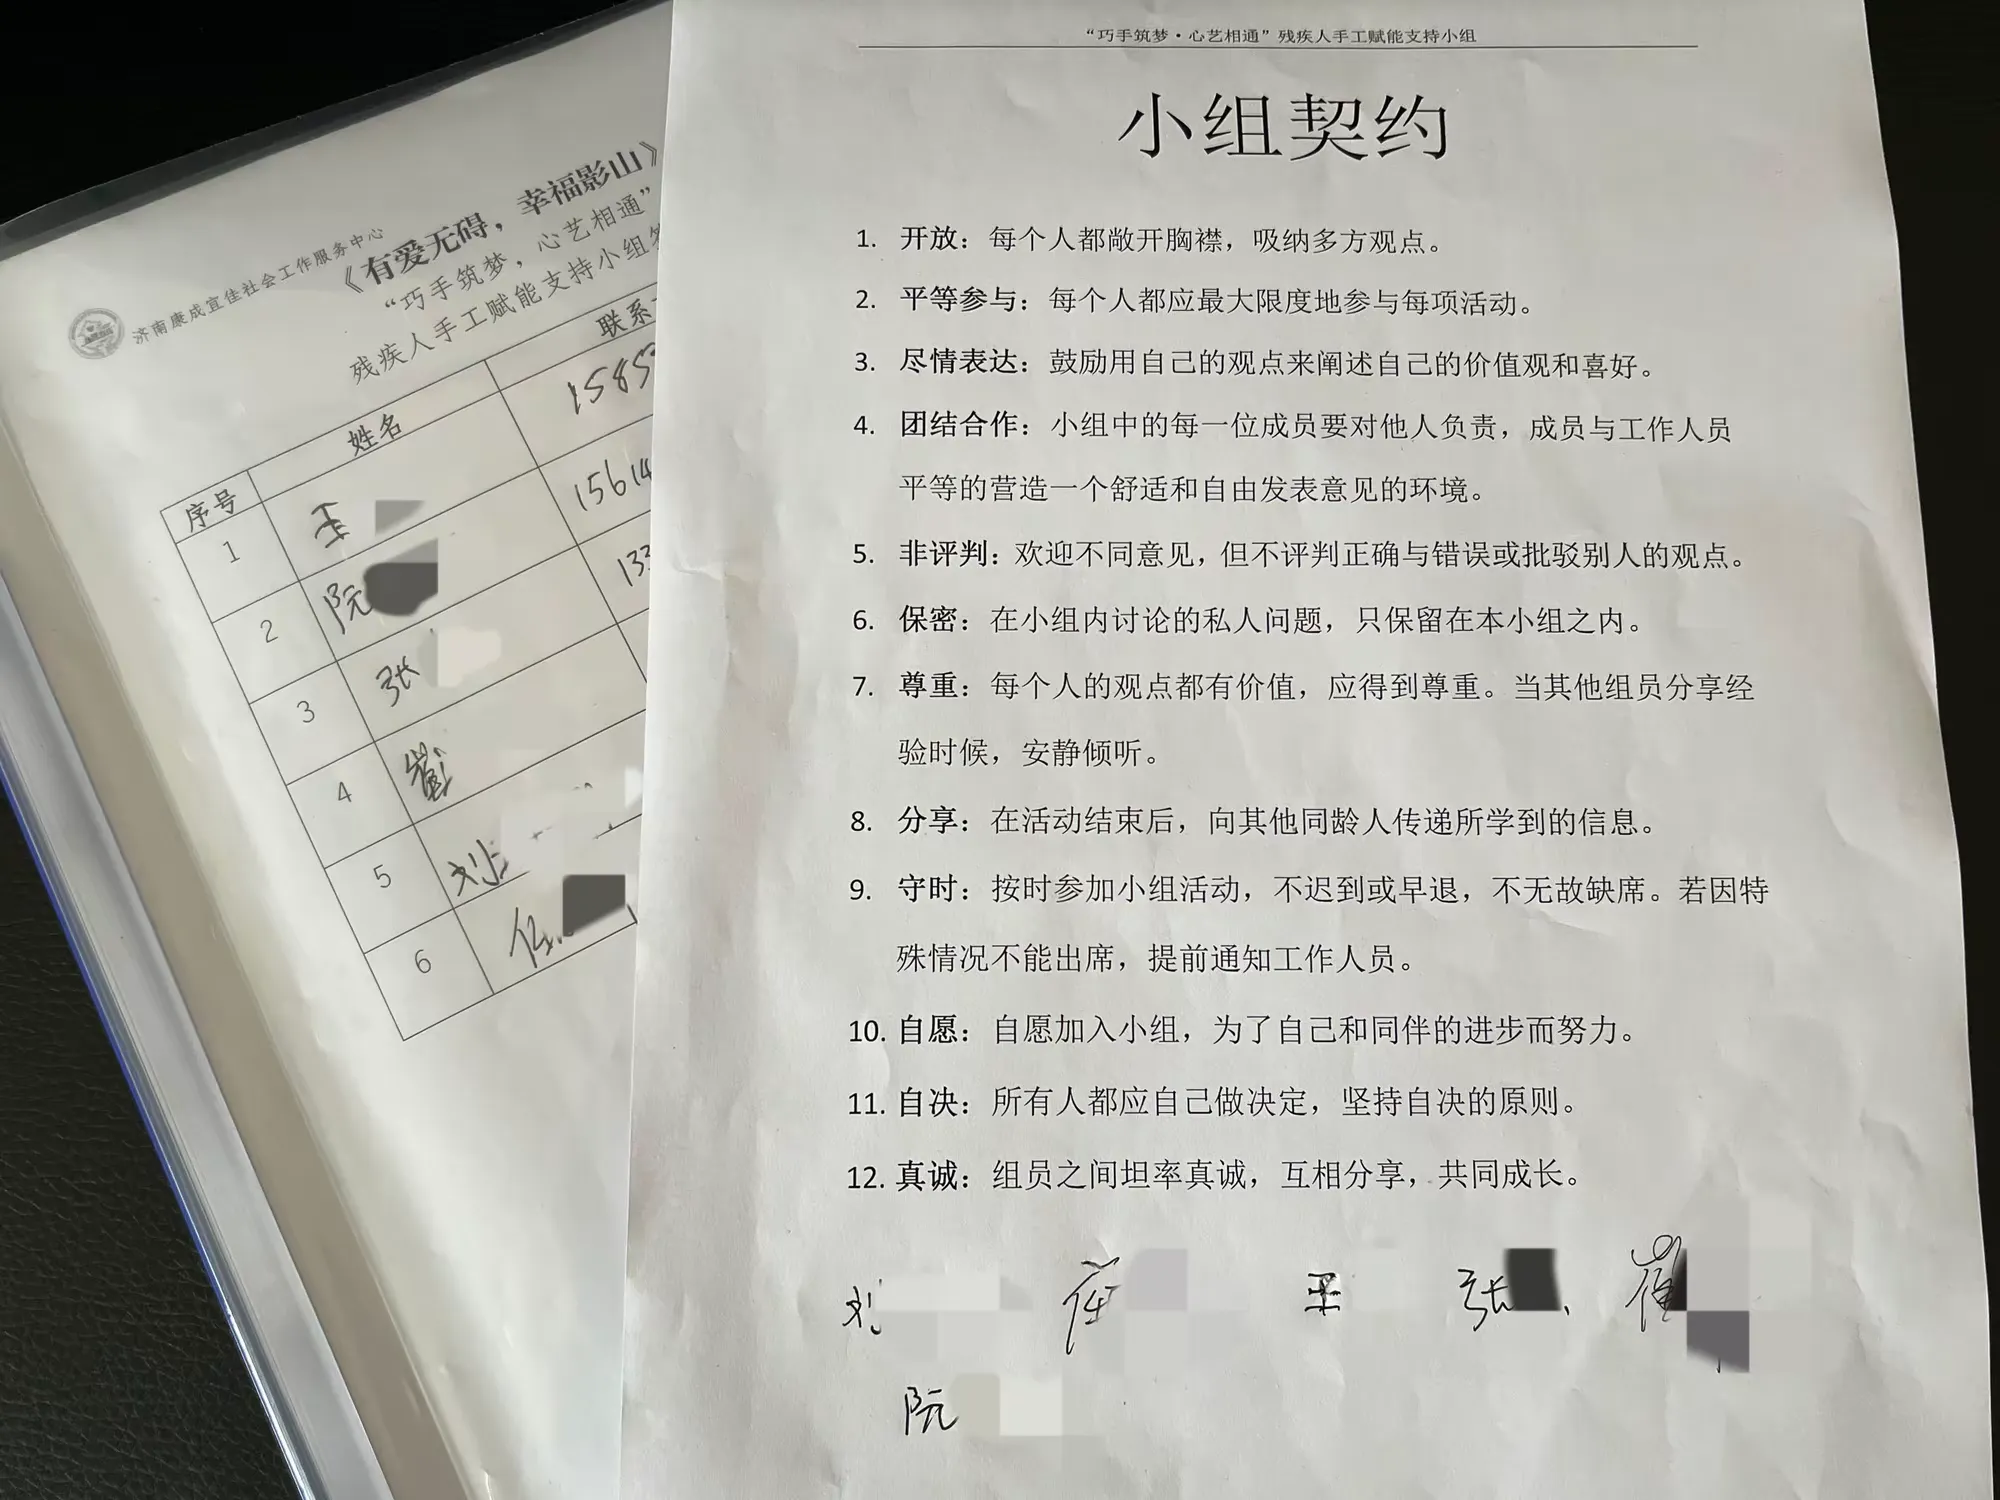 济南康成宜佳社会工作服务中心
《有爱无碍，幸福影山》
“巧手筑梦，心艺相通”
残疾人手工赋能支持小组
序号 姓名 联系
1 王 1585
2 阮 15614
3 张 133
4 崔
5 刘
6 任
“巧手筑梦·心艺相通”残疾人手工赋能支持小组
小组契约
1. 开放：每个人都敞开胸襟，吸纳多方观点。
2. 平等参与：每个人都应最大限度地参与每项活动。
3. 尽情表达：鼓励用自己的观点来阐述自己的价值观和喜好。
4. 团结合作：小组中的每一位成员要对他人负责，成员与工作人员
平等的营造一个舒适和自由发表意见的环境。
5. 非评判：欢迎不同意见，但不评判正确与错误或批驳别人的观点。
6. 保密：在小组内讨论的私人问题，只保留在本小组之内。
7. 尊重：每个人的观点都有价值，应得到尊重。当其他组员分享经
验时候，安静倾听。
8. 分享：在活动结束后，向其他同龄人传递所学到的信息。
9. 守时：按时参加小组活动，不迟到或早退，不无故缺席。若因特
殊情况不能出席，提前通知工作人员。
10. 自愿：自愿加入小组，为了自己和同伴的进步而努力。
11. 自决：所有人都应自己做决定，坚持自决的原则。
12. 真诚：组员之间坦率真诚，互相分享，共同成长。
刘 王 张 崔
阮